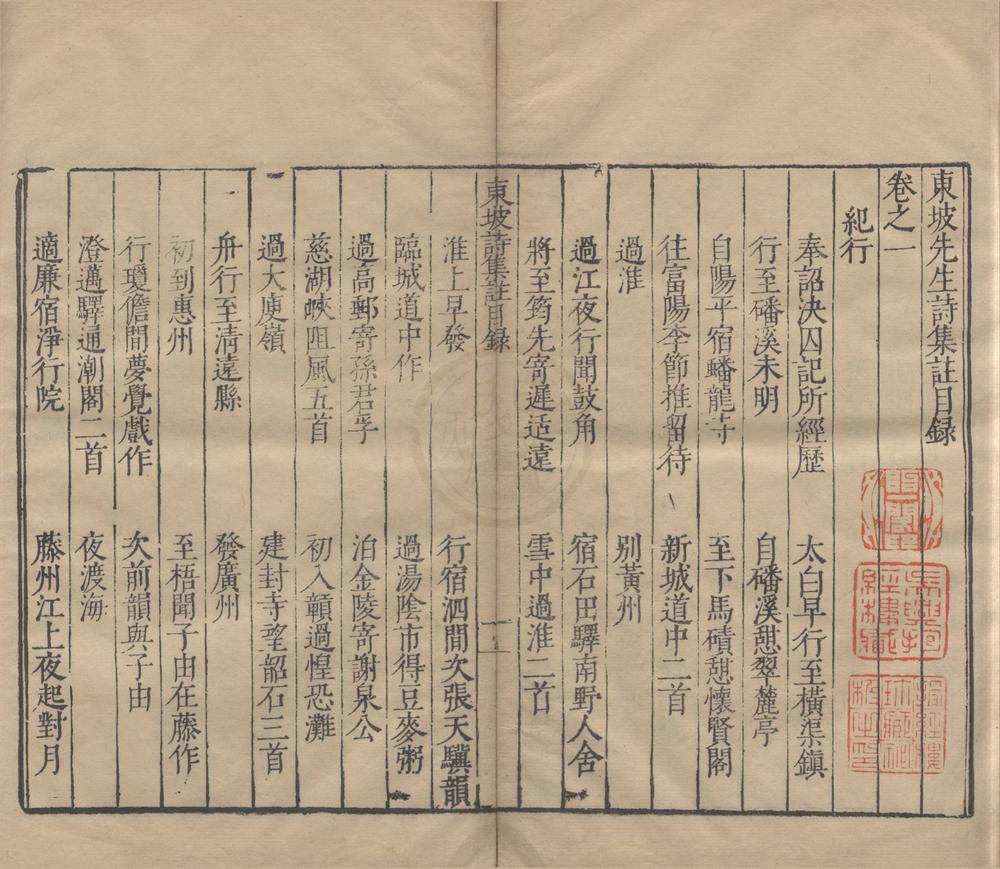 東坡先生詩集註目録
卷之一
紀行
奉詔決囚記所經歷 太白早行至橫渠鎮
行至磻溪未明 自磻溪憩翠麓亭
自陽平宿蟠龍寺 至下馬磧憩懷賢閣
往富陽李節推留待 新城道中二首
過淮 別黃州
過江夜行聞鼓角 宿石田驛南野人舍
將至筠先寄遲适遠 雪中過淮二首
東坡詩集註目録 一
淮上早發 行宿泗間次張天驥韻
臨城道中作 過湯陰市得豆麥粥
過高郵寄孫君孚 泊金陵寄謝泉公
慈湖峽阻風五首 初入贛過惶恐灘
過大庾嶺 建封寺望韶石三首
舟行至清遠縣 發廣州
初到惠州 至梧聞子由在藤作
行瓊儋間夢覺戲作 次前韻與子由
澄邁驛通潮閣二首 夜渡海
適廉宿淨行院 藤州江上夜起對月